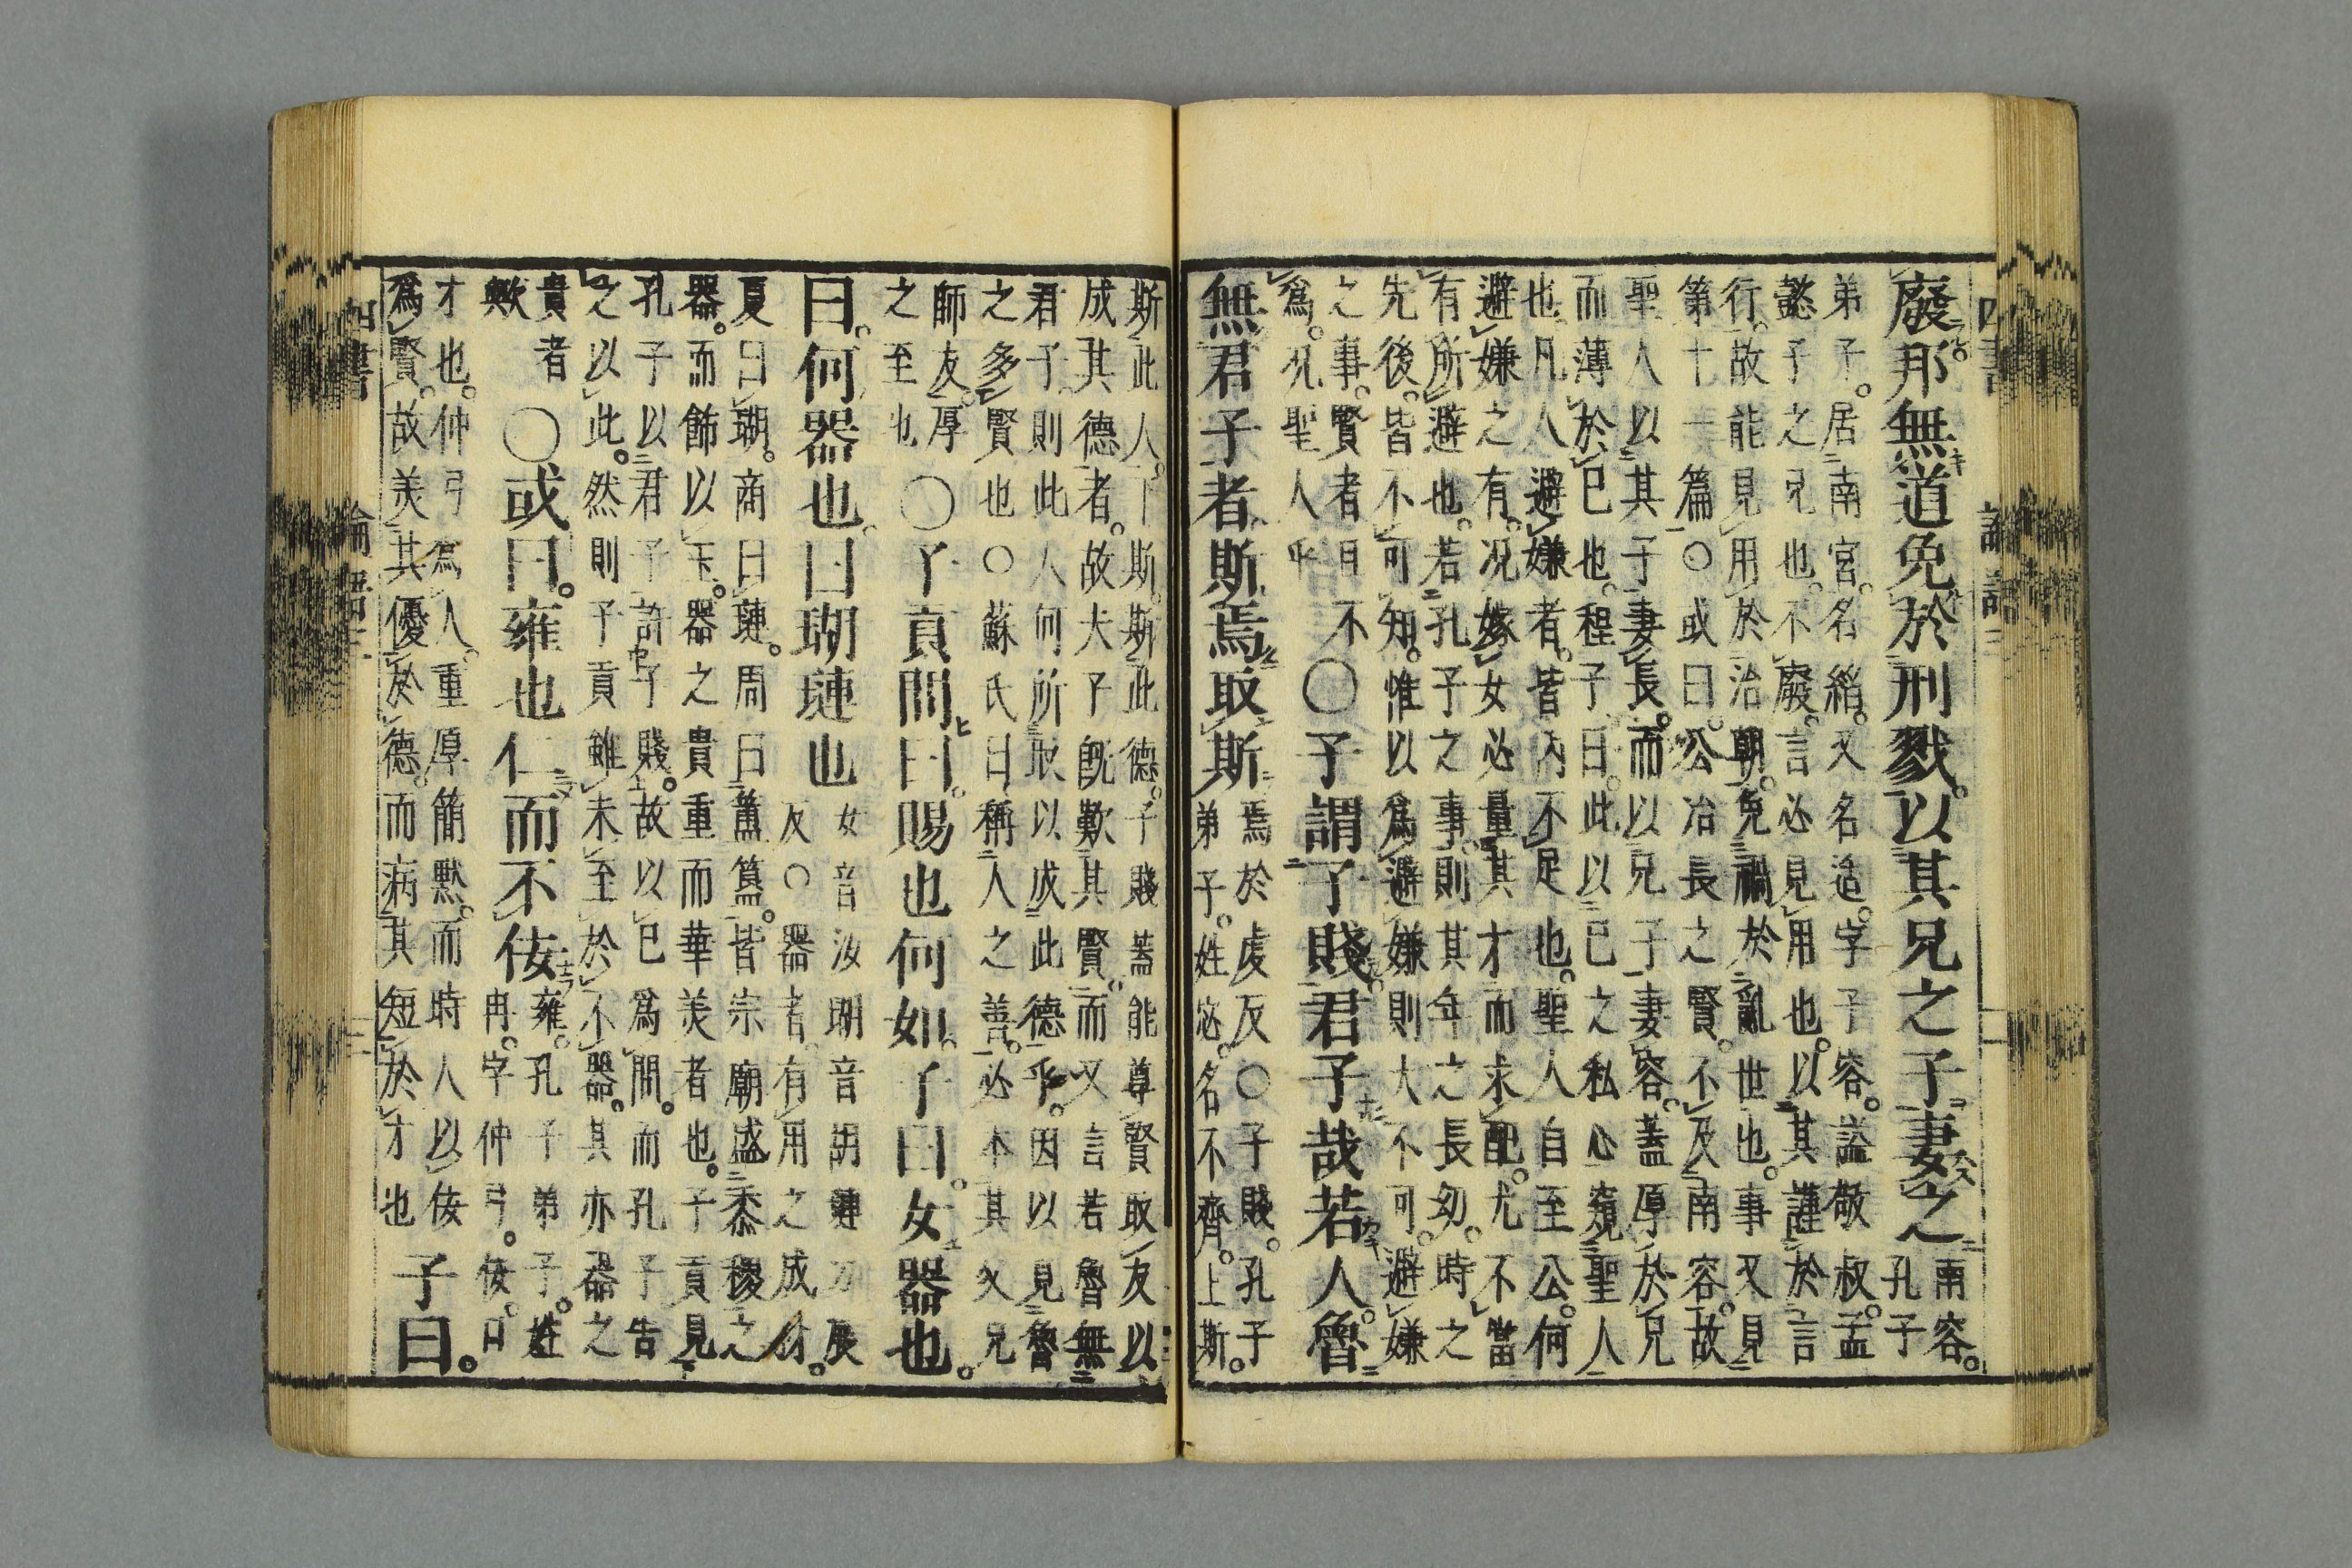 廢。邦無道免於刑戮。以其兄之子妻之
南容。
孔子
弟子。居南宮。名縚。又名适。字子容。謚敬叔。孟
懿子之兄也。不廢。言必見用也。以其謹於言
行。故能見用於治朝。免禍於亂世也。事又見
第十一篇○或曰。公冶長之賢。不及南容。故
聖人以其子妻長。而以兄子妻容。蓋厚於兄
而薄於己也。程子曰。此以己之私心窺聖人
也。凡人避嫌者。皆內不足也。聖人自至公。何
避嫌之有。況嫁女必量其才而求配。尤不當
有所避也。若孔子之事。則其年之長幼。時之
先後。皆不可知。惟以爲避嫌則大不可。避嫌
之事。賢者且不
爲。況聖人乎
○子謂子賤。君子哉若人。魯
無君子者。斯焉取斯
焉於虔反○子賤。孔子
弟子。姓宓。名不齊。上斯。
斯此人。下斯。斯此德。子賤蓋能尊賢取友以
成其德者。故夫子既歎其賢。而又言若魯無
君子則此人何所取以成此德乎。因以見魯
之多賢也○蘇氏曰稱人之善。必本其父兄
師友。厚
之至也
○子貢問曰。賜也何如。子曰。女器也。
曰。何器也。曰瑚璉也
女音汝瑚音胡璉力展
反○器者。有用之成才。
夏曰瑚。商曰璉。周曰簠簋。皆宗廟盛黍稷之
器。而飾以玉。器之貴重而華美者也。子貢見
孔子以君子許子賤。故以己爲問。而孔子告
之以此。然則子貢雖未至於不器。其亦器之
貴者
歟
○或曰。雍也仁而不佞
雍。孔子弟子。姓
冉。字仲弓。佞。口
才也。仲弓爲人。重厚簡默。而時人以佞
爲賢。故美其優於德。而病其短於才也
子曰。
四書
論語二